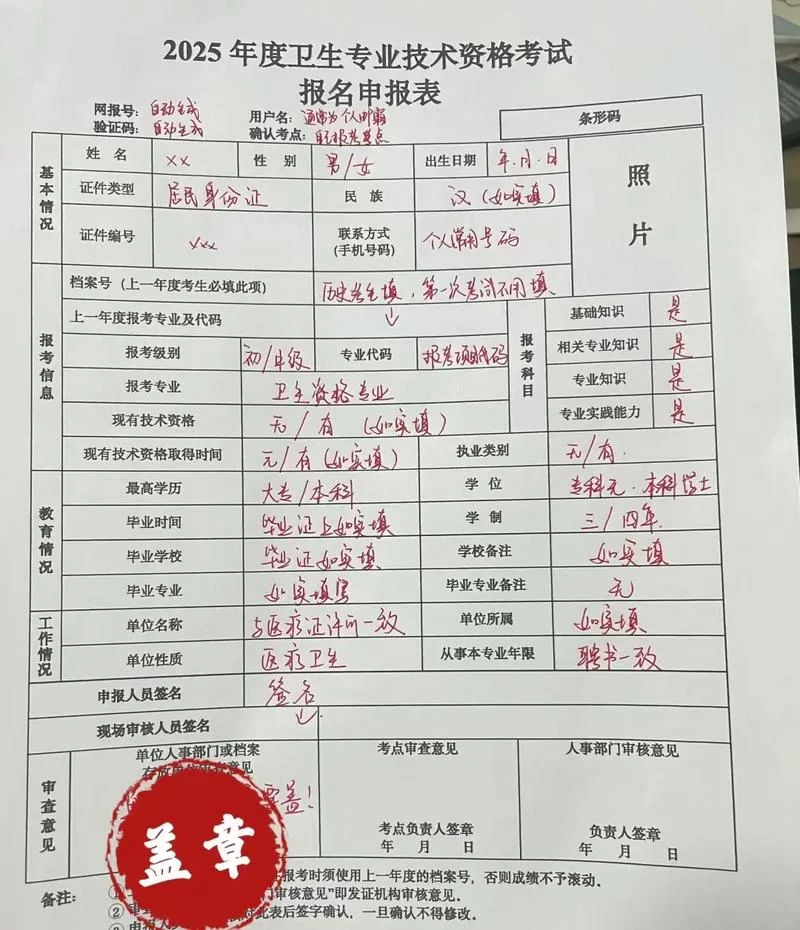 2025 年度卫生专业技术资格考试
报名申报表
网报号： 自动生成
用户名： 通常为个人邮箱
条形码
验证码： 自动生成
确认考点： 自己报考考点
基本情况
姓 名 xx 性 别 男/女 出生日期 年.月.日
照片
证件类型 居民身份证 民 族 汉（如实填）
证件编号 xxx 联系方式（手机号码） 个人常用号码
报考信息
档案号（上一年度考生必填此项） 历史考生填，第一次考试不用填
上一年度报考专业及代码 ↓
报考科目
基础知识 是
相关专业知识 是
专业知识 是
专业实践能力 是
报考级别 初/中级 专业代码 报考项目代码
报考专业 卫生资格专业
现有技术资格 无/有（如实填）
现有技术资格取得时间 无/有（如实填） 执业类别 无/有.
教育情况
最高学历 大专/本科 学 位 专科无.本科学士
毕业时间 毕业证上如实填 学 制 三/四年.
毕业学校 毕业证如实填 学校备注 如实填
毕业专业 如实填写 毕业专业备注 无
工作情况
单位名称 与医疗证许可一致 单位所属 如实填
单位性质 医疗卫生 从事本专业年限 聘书一致
申报人员签名 签名
现场审核人员签名 ↓
审查意见
单位人事部门或档案
存放单位审查意见
盖！
盖章
考点审查意见
考点负责人签章
年 月 日
人事部门审核意见
负责人签章
年 月 日
备注：
报考时须使用上一年度的档案号，否则成绩不予滚动。
② 门审核意见”即发证机构审核意见。
对此表后签字确认，一旦确认不得修改。